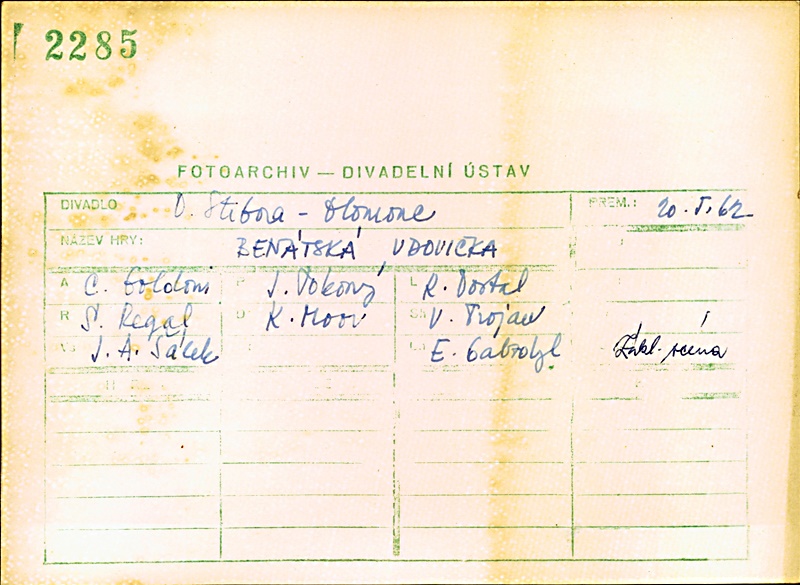 2285
FOTOARCHIV — DIVADELNÍ ÚSTAV
DIVADLO O. Stibora - Olomouc PREM.: 20.I.62
NÁZEV HRY: BENÁTSKÁ VDOVIČKA
A C. Goldoni P J. Pokorný L R. Dostal
R S. Regal D K. Moor V. Trojan
J. A. Šálek E. Gabzdyl Zákl. scéna